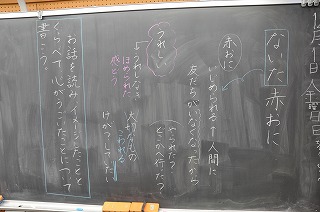 月１日 金曜日
ないた赤おに
赤おに
いじめられる↑人間に
友だちがいなくなったから
やこれたっ
どこかへ行った
うれし
うれしなき
ほめられた
感どう
大切なもの
こわれる
けがっしてた
お話を読みイメージしたことと
くらべて心がうごいたことについて
書こう。